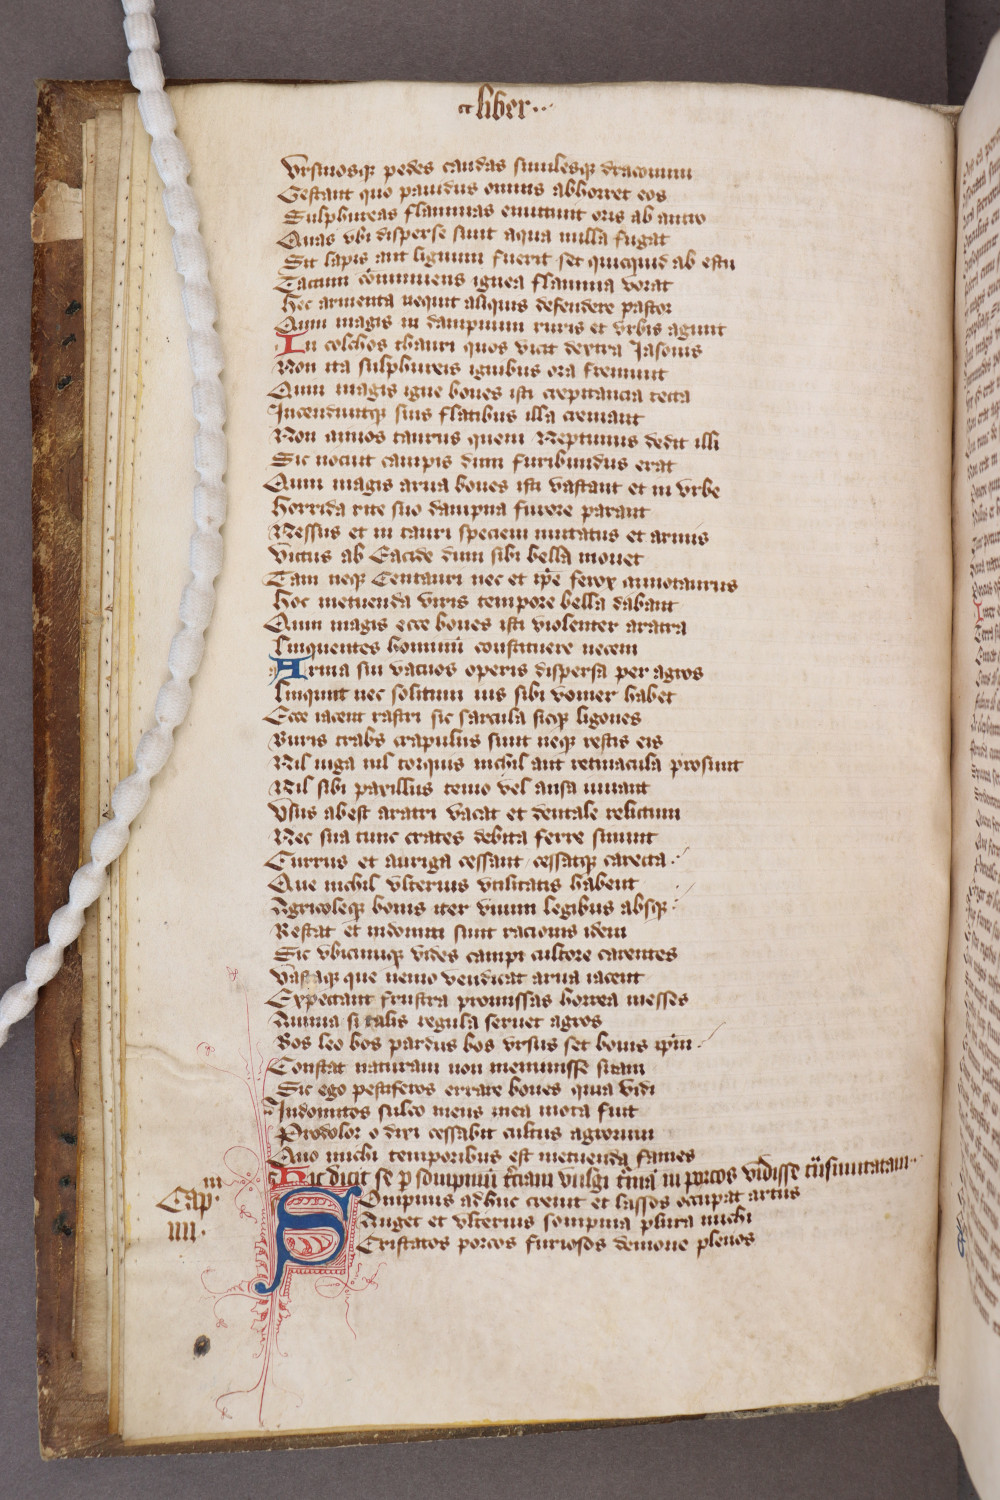 liber
Vrsinosqz pedes caudas similesqz draconum
Gestant quo pauidus omnis abhorret eos
Sulphureas flammas emittunt oris ab antro
Quas vbi disperse sunt aqua nulla fugat
Sit lapis aut lignum fuerit set quicquid ab estu
Tactum conuiuens ignea flamma vorat
Hec armenta nequit aliquis defendere pastor
Quin magis in dampnum ruris et vrbis agunt
In colchos thauri quos vicit dextra Jasonis
Non ita sulphureis ignibus ora fremunt
Quin magis igne boues isti crepitancia tecta
Incenduntqz suis flatibus illa cremant
Non minos taurus quem Neptunus dedit illi
Sic nocuit campis dum furibundus erat
Quin magis arua boues isti vastant et in vrbe
Horrida rite suo dampna furore parant
Nessus et in tauri speciem mutatus et armis
Victus ab Eacide dum sibi bella mouet
Tam neqz Centauri nec et ip̄e ferox minotaurus
Hoc metuenda viris tempore bella dabant
Quin magis ecce boues isti violenter aratra
Linquentes hominū constituere necem
Arma sui vacuos operis dispersa per agros
Linquunt nec solitum ius sibi vomer habet
Ecce iacent rastri sic sarcula sicqz ligones
Buris trabs crapulus sunt neqz restis eis
Nil iuga nil torquis nichil aut retinacula prosunt
Nil sibi paxillus temo vel ansa iuuant
Vsus abest aratri vacat et dentale relictum
Nec sua tunc crates debita ferre sinunt
Currus et auriga cessant cessatqz carecta
Que nichil vlterius vtilitatis habent
Agricoleqz bonis iter vnum legibus absqz
Restat et indomiti sunt racionis idem
Sic vbicumqz vides campi cultore carentes
Vastaqz que nemo vendicat arua iacent
Expectant frustra promissas horrea messes
Annua si talis regula seruet agros
Bos leo bos pardus bos vrsus set bouis ip̄m
Constat naturam non meminisse suam
Sic ego pestiferos errare boues quia vidi
Indomitos sulco mens mea mota fuit
Prodolor o dixi cessabit cultus agrorum
Quo michi temporibus est metuenda fames
Hic dicit se p sompniū t̄ciam vulgi t̄mā in porcos vidisse t̄nsmutatam
Capm
iiii
Sompnus adhuc creuit et lassos occupat artus
Auget et vlterius sompnia plura michi
Cristatos porcos furiosos demone plenos